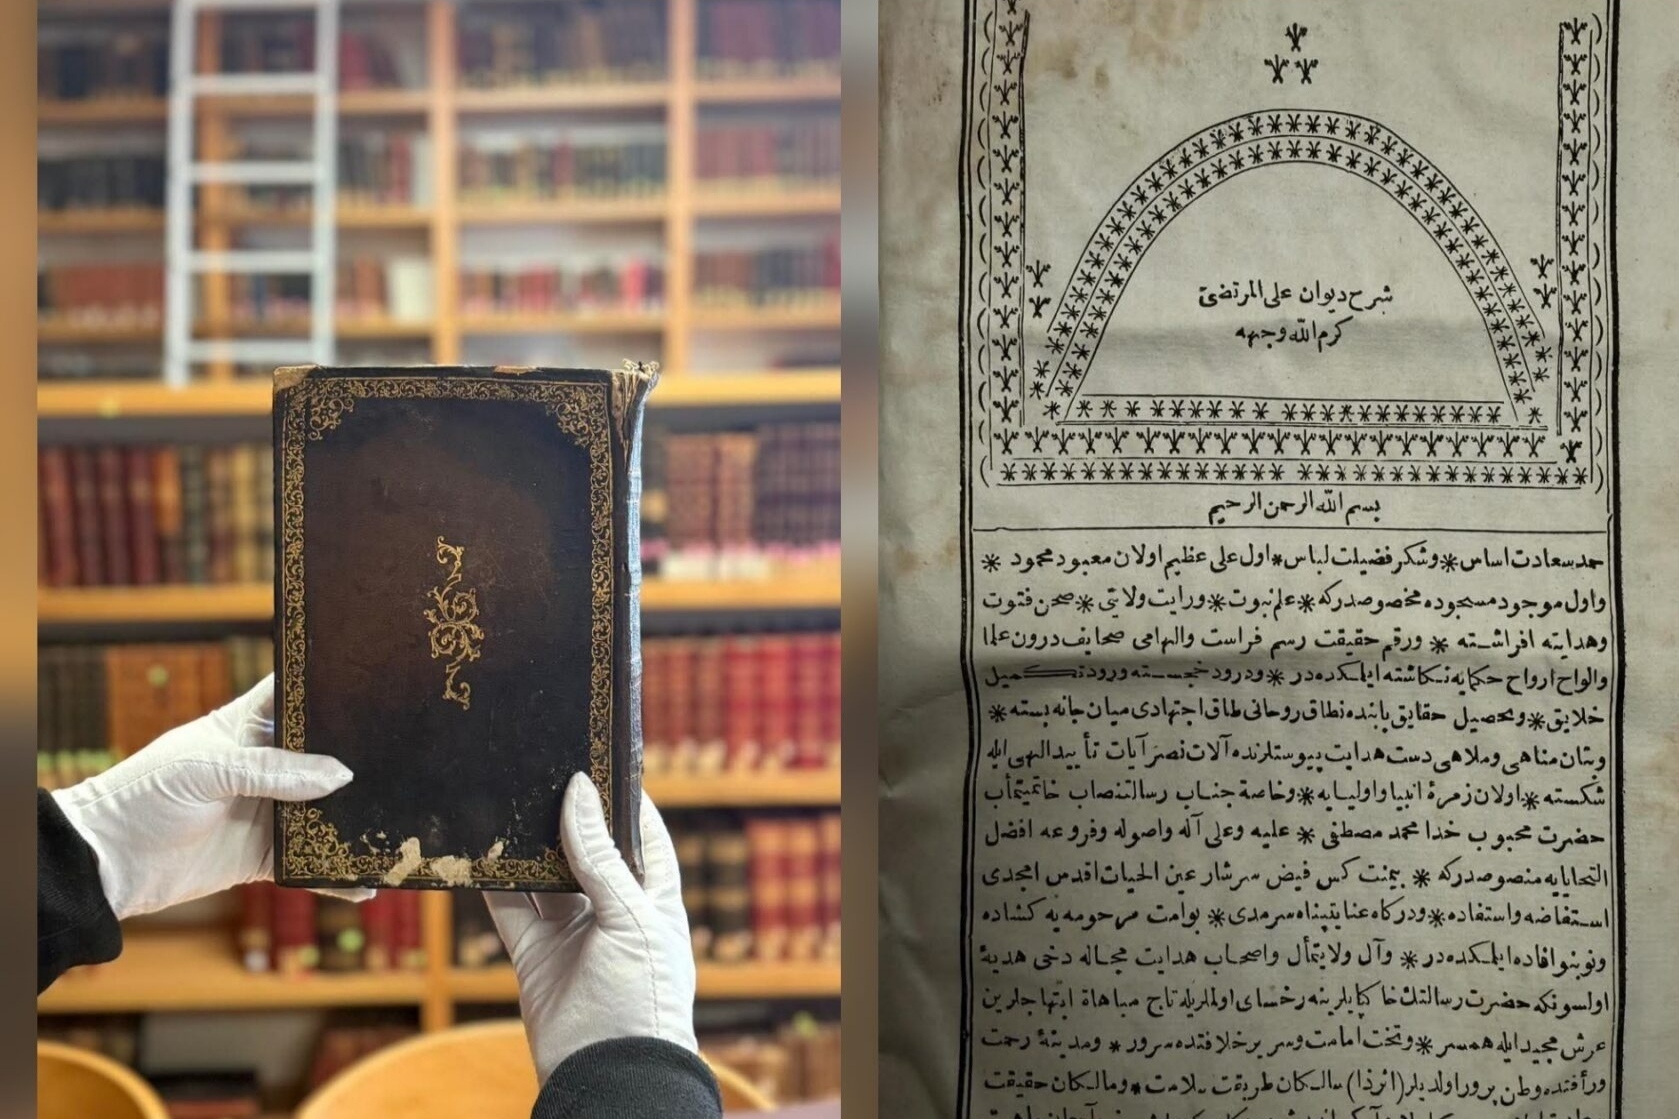 شرح ديوان على المرتضى
كرم الله وجهه
بسم الله الرحمن الرحيم
حمد سعادت اساس * وشكر فضيلت لباس * اول على عظيم اولان معبود محمود *
واول موجود مسجوده مخصوصدركه * علم نبوت * ورايت ولايتى * صحن فتوت
وهدايته افراشته * ورقم حقيقت رسم فراست والهامى صحايف درون علما
والواح ارواح حكمايه نكاشته ايلمكده در * ودرود خجسته ورود تكميل
خلايق * وتحصيل حقايق بابنده نطاق روحانى طاق اجتهادى ميان جانه بسته *
وبتان مناهى وملاهى دست هدايت پيوستلرنده آلات نصر آيات تأييد الهى ايله
شكسته * اولان زمرهٔ انبيا واوليايه * وخاصة جناب رسالتنصاب خاتميتمأب
حضرت محبوب خدا محمد مصطفى * عليه وعلى آله واصوله وفروعه افضل
التحايايه منصوصدركه * يمنت كس فيض سرشار عين الحيات اقدس امجدى
استفاضه واستفاده * ودركاه عنايتپناه سرمدى * بو امت مرحومه يه كشاده
ونوبنو افاده ايلمكده در * وآل ولايتمأل واصحاب هدايت مجاله دخى هديۀ
اولسونكه حضرت رسالتك خاكپايلرينه رخساى اولملريله تاج مباهاة ابتهاجلرين
عرش مجيد ايله همسر * وتخت امامت وسرير خلافتده سرور * ومدينۀ رحمت
ورأفتده وطن پرور اولديلر (اثرذا) سالكان طريقت سلامت * ومالكان حقيقت